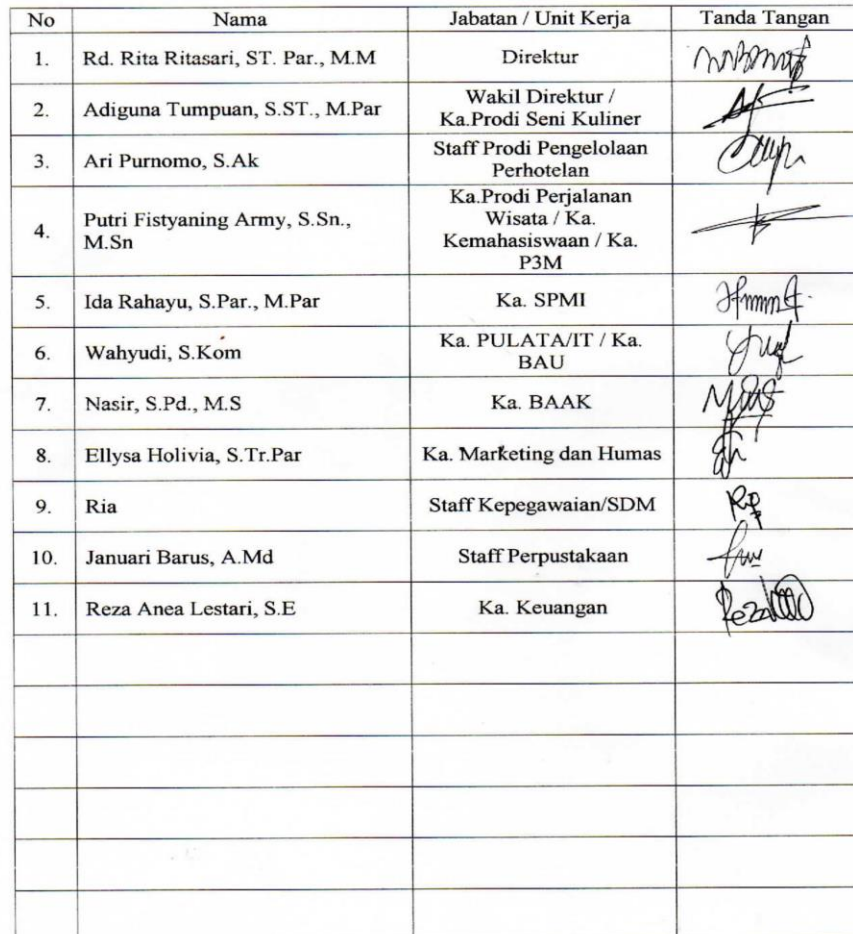 No Nama Jabatan / Unit Kerja Tanda Tangan
1. Rd. Rita Ritasari, ST. Par., M.M Direktur
2. Adiguna Tumpuan, S.ST., M.Par Wakil Direktur /
Ka.Prodi Seni Kuliner
3. Ari Purnomo, S.Ak Staff Prodi Pengelolaan
Perhotelan
4. Putri Fistyaning Army, S.Sn.,
M.Sn
Ka.Prodi Perjalanan
Wisata / Ka.
Kemahasiswaan / Ka.
P3M
5. Ida Rahayu, S.Par., M.Par Ka. SPMI
6. Wahyudi, S.Kom Ka. PULATA/IT / Ka.
BAU
7. Nasir, S.Pd., M.S Ka. BAAK
8. Ellysa Holivia, S.Tr.Par Ka. Marketing dan Humas
9. Ria Staff Kepegawaian/SDM
10. Januari Barus, A.Md Staff Perpustakaan
11. Reza Anea Lestari, S.E Ka. Keuangan